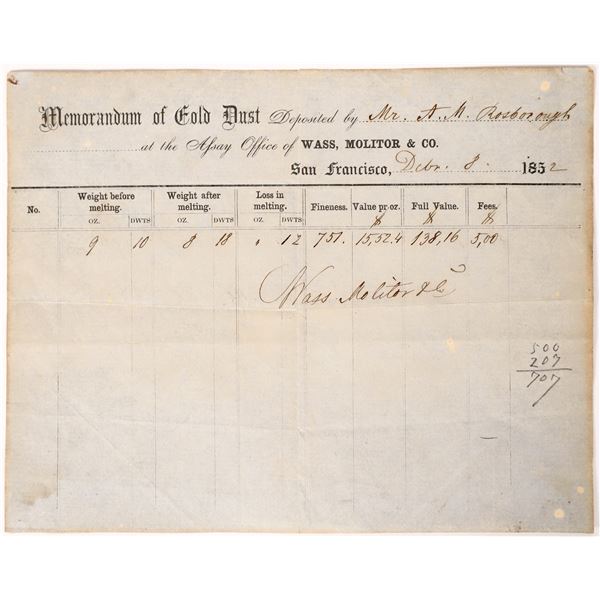 Memorandum of Gold Dust Deposited by Mr. A. M. Rosborough
at the Assay Office of WASS, MOLITOR & CO.
San Francisco, Debr. 8. 1852
No. Weight before melting. Weight after melting. Loss in melting. Fineness. Value pr oz. Full Value. Fees.
OZ. DWTS OZ. DWTS OZ. DWTS $ $ $
9 10 8 18 " 12 751. 15,52.4 138,16 5,00
Wass Molitor & Co
500
207
707